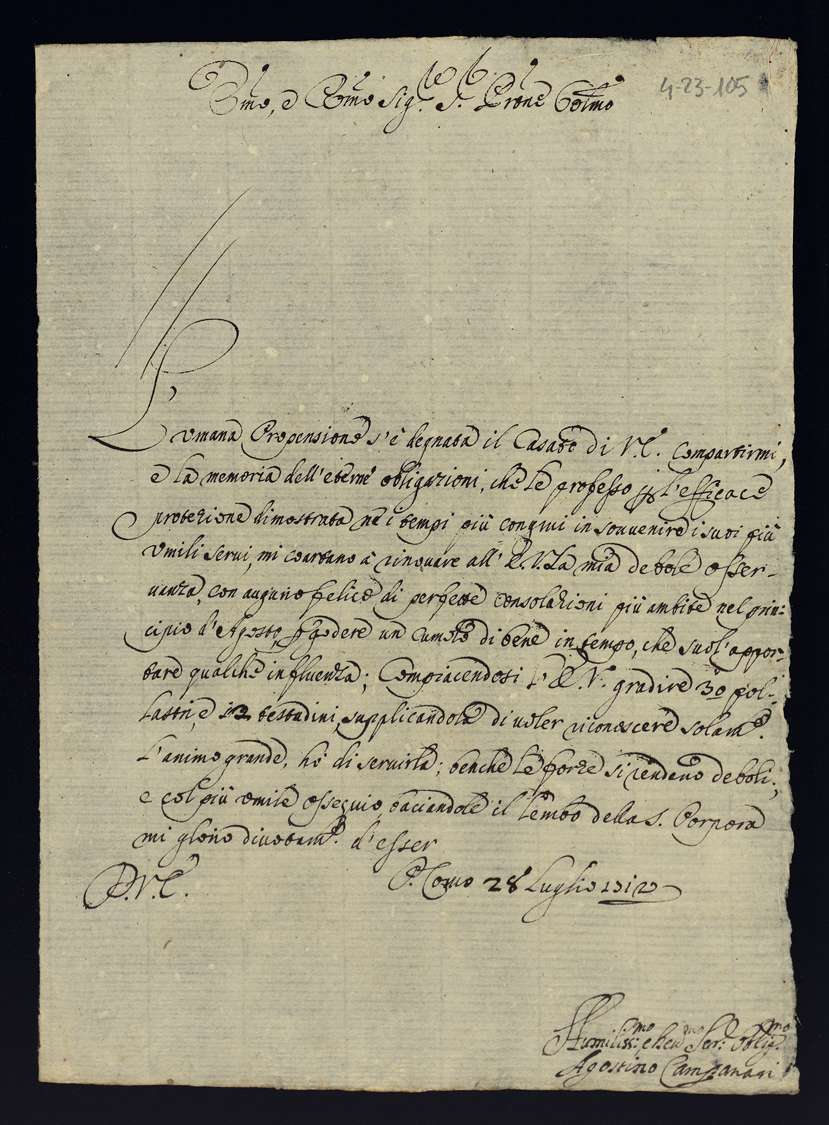 Em̃o, e Rm̃o Sig.r S.r Prone Colmo
4-23-105
L'umana Propensione s'è degnata il Casato di V.E. compartirmi,
e la memoria dell'eterne obligazioni, che le professo per l'efficace
protezione dimostrata ne i tempi più congrui in souvenire i suoi più
umili serui, mi coartano à rinouare all'E.V. la mia debole osser-
uanza, con augurio felice di perfette consolazioni più ambite nel prin-
cipio d'Agosto, per godere un cumolo di bene in tempo, che suol'appor-
tare qualche influenza; Compiacendosi l'E.V. gradire 30 pol-
lastri, e 12 testudini, supplicandola di uoler riconoscere solam.e
l'animo grande, hò di seruirla; benche le forze si rendano deboli;
e col più umile ossequio, baciandole il lembo della S. Porpora
mi glorio diuotam.e d'esser
D.V.E.
28 Luglio 1712
Humiliss.mo e Deu.mo Ser.e oblig.mo
Agostino Campanari